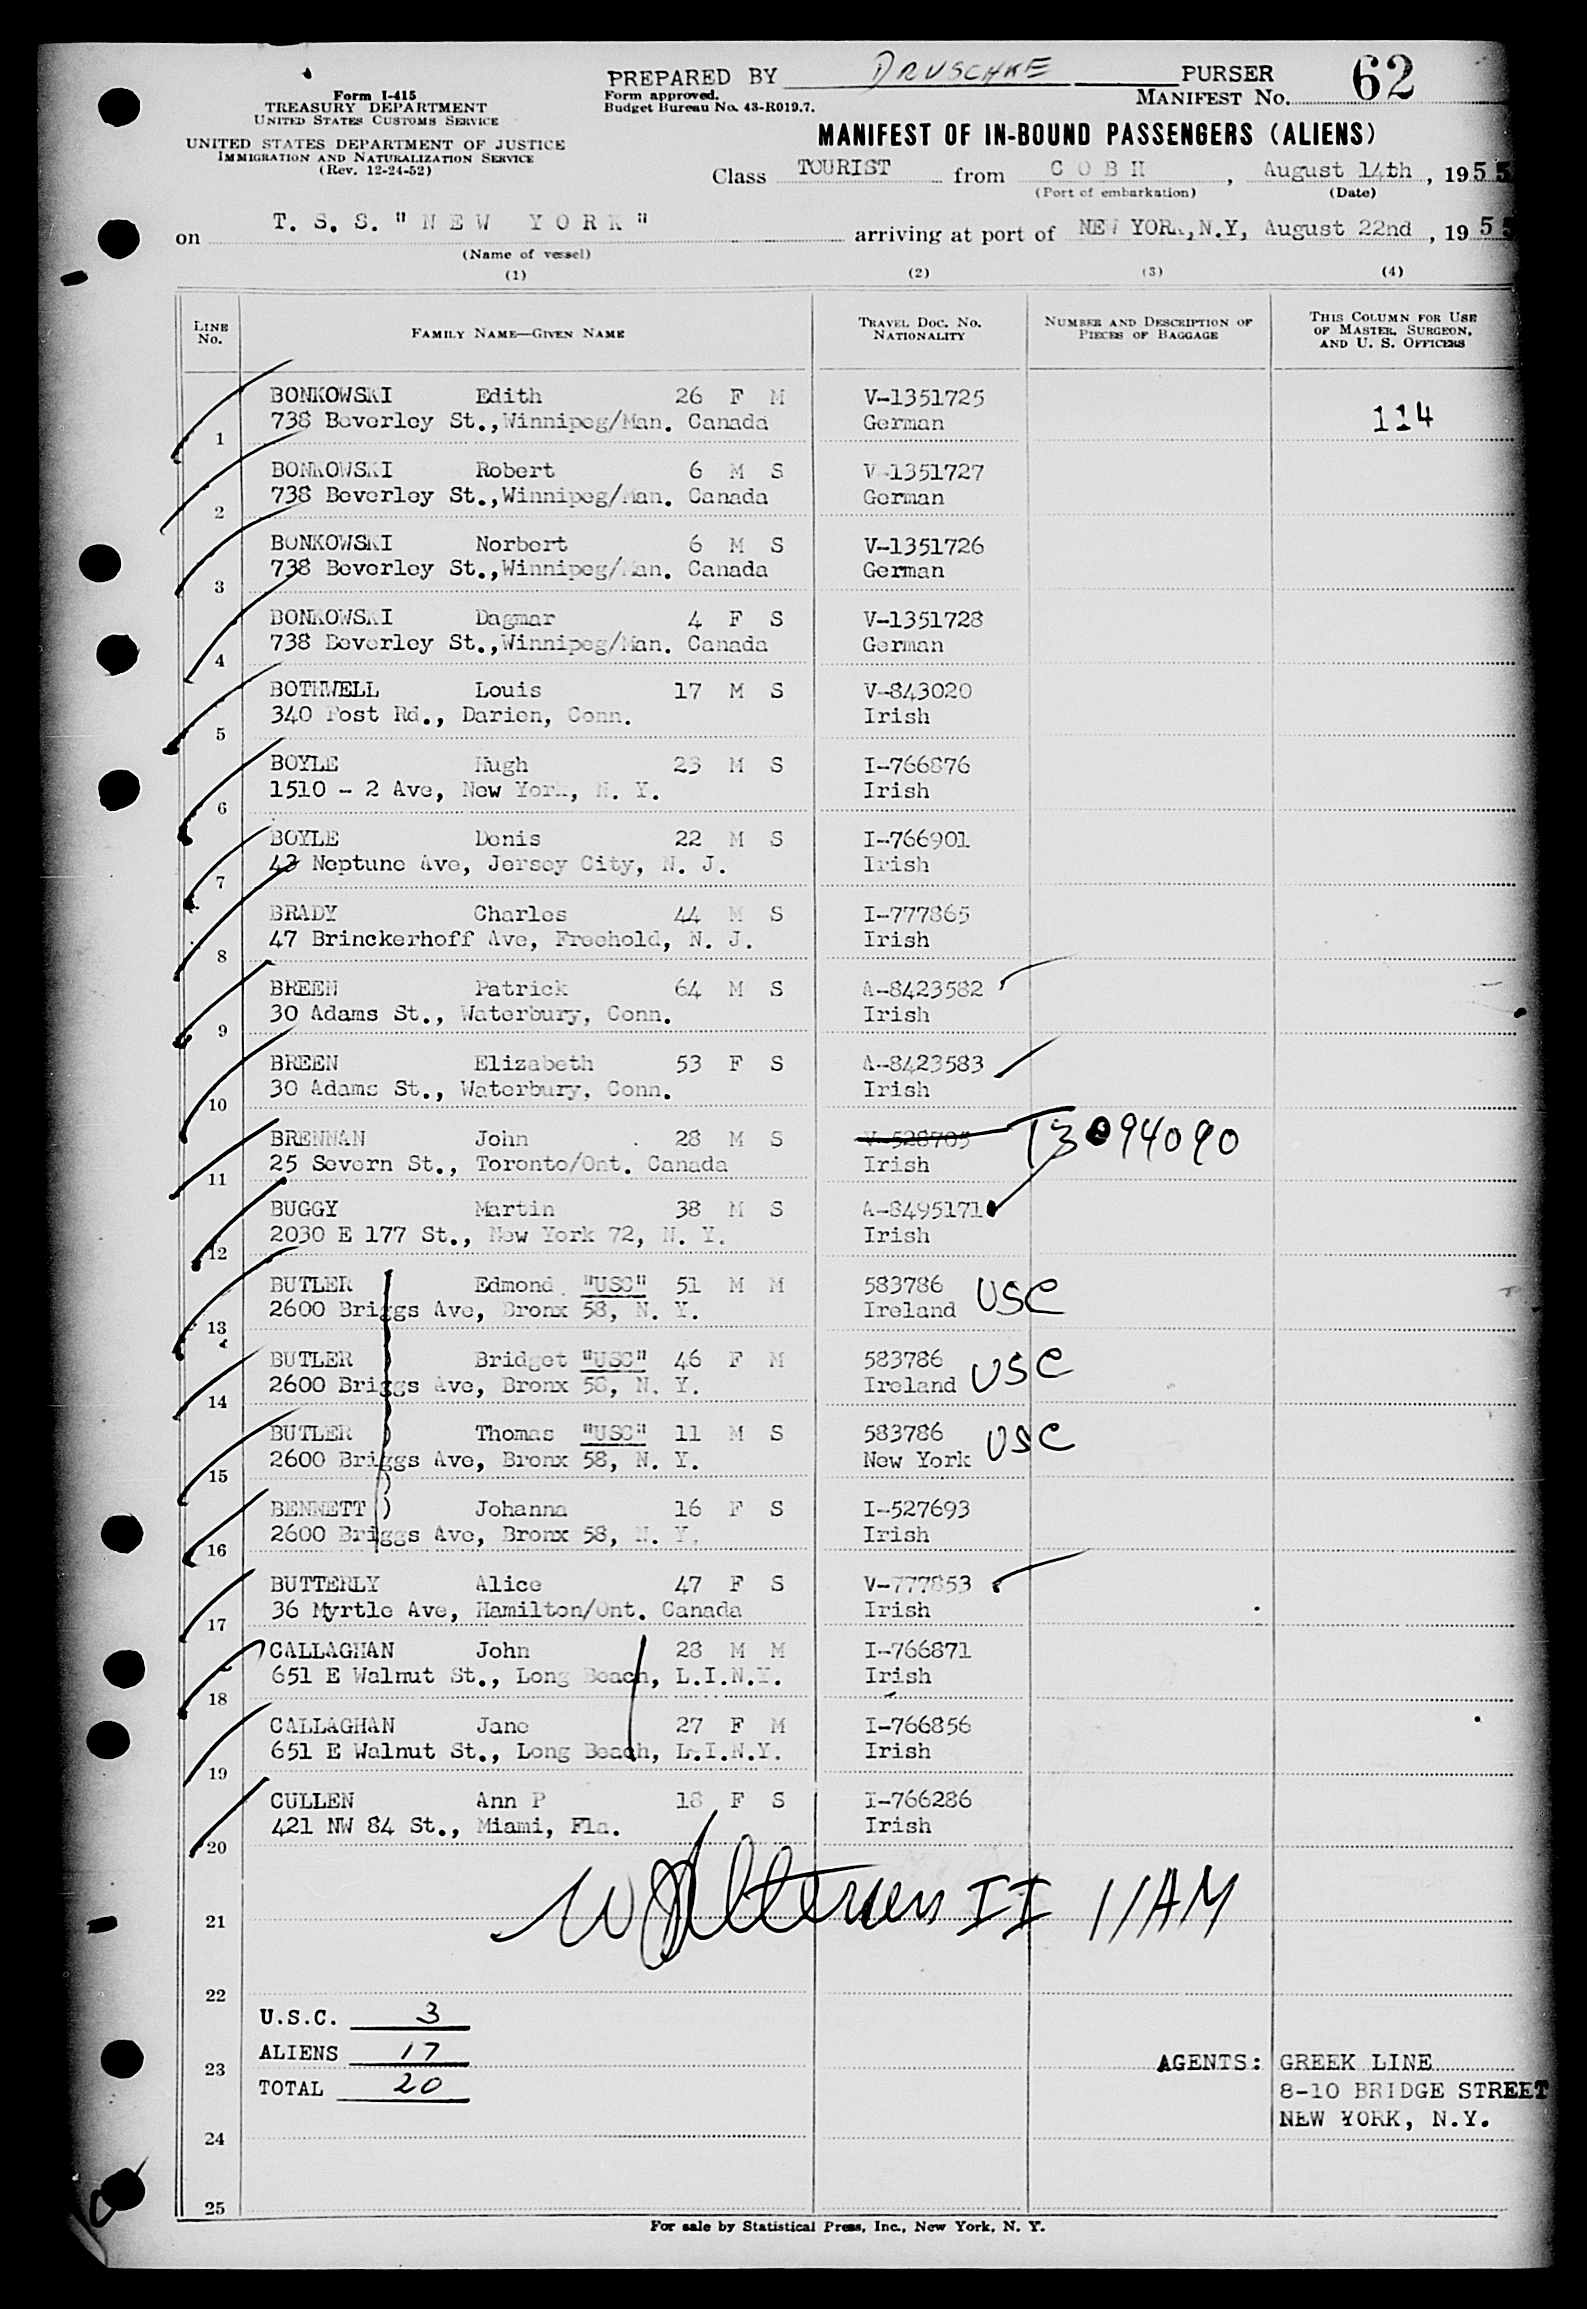 PREPARED BY DRUSCHKE PURSER
Form I-415
TREASURY DEPARTMENT
UNITED STATES CUSTOMS SERVICE
UNITED STATES DEPARTMENT OF JUSTICE
IMMIGRATION AND NATURALIZATION SERVICE
(Rev. 12-24-52)
Form approved.
Budget Bureau No. 43-R019.7.
MANIFEST NO. 62
MANIFEST OF IN-BOUND PASSENGERS (ALIENS)
Class TOURIST from C O B H, August 14th, 1955
(Port of embarkation) (Date)
on T. S. S. "N E W Y O R K" arriving at port of NEW YORK, N.Y, August 22nd, 1955
(Name of vessel)
(1) (2) (3) (4)
LINE NO. FAMILY NAME—GIVEN NAME TRAVEL DOC. NO. NATIONALITY NUMBER AND DESCRIPTION OF PIECES OF BAGGAGE THIS COLUMN FOR USE OF MASTER, SURGEON, AND U. S. OFFICERS
BONKOWSKI Edith 26 F M V-1351725
1 738 Beverley St.,Winnipeg/Man. Canada German 114
BONKOWSKI Robert 6 M S V-1351727
2 738 Beverley St.,Winnipeg/Man. Canada German
BONKOWSKI Norbert 6 M S V-1351726
3 738 Beverley St.,Winnipeg/Man. Canada German
BONKOWSKI Dagmar 4 F S V-1351728
4 738 Beverley St.,Winnipeg/Man. Canada German
BOTHWELL Louis 17 M S V-843020
5 340 Post Rd., Darien, Conn. Irish
BOYLE Hugh 23 M S I-766876
6 1510 - 2 Ave, New York, N. Y. Irish
BOYLE Denis 22 M S I-766901
7 43 Neptune Ave, Jersey City, N. J. Irish
BRADY Charles 44 M S I-777865
8 47 Brinckerhoff Ave, Freehold, N. J. Irish
BREEN Patrick 64 M S A-8423582
9 30 Adams St., Waterbury, Conn. Irish
BREEN Elizabeth 53 F S A-8423583
10 30 Adams St., Waterbury, Conn. Irish
BRENNAN John 28 M S V-528705 T3094090
11 25 Severn St., Toronto/Ont. Canada Irish
BUGGY Martin 38 M S A-8495171
12 2030 E 177 St., New York 72, N. Y. Irish
BUTLER Edmond "USC" 51 M M 583786 USC
13 2600 Briggs Ave, Bronx 58, N. Y. Ireland
BUTLER ) Bridget "USC" 46 F M 583786 USC
14 2600 Briggs Ave, Bronx 58, N. Y. Ireland
BUTLER ) Thomas "USC" 11 M S 583786 USC
15 2600 Briggs Ave, Bronx 58, N. Y. New York
BENNETT ) Johanna 16 F S I-527693
16 2600 Briggs Ave, Bronx 58, N. Y. Irish
BUTTERLY Alice 47 F S V-777853
17 36 Myrtle Ave, Hamilton/Ont. Canada Irish
CALLAGHAN John 28 M M I-766871
18 651 E Walnut St., Long Beach, L.I.N.Y. Irish
CALLAGHAN Jane 27 F M I-766856
19 651 E Walnut St., Long Beach, L.I.N.Y. Irish
CULLEN Ann P 18 F S I-766286
20 421 NW 84 St., Miami, Fla. Irish
21 II 11AM
22
U.S.C. 3
23 ALIENS 17
TOTAL 20
AGENTS: GREEK LINE
8-10 BRIDGE STREET
NEW YORK, N.Y.
24
25
For sale by Statistical Press, Inc., New York, N. Y.